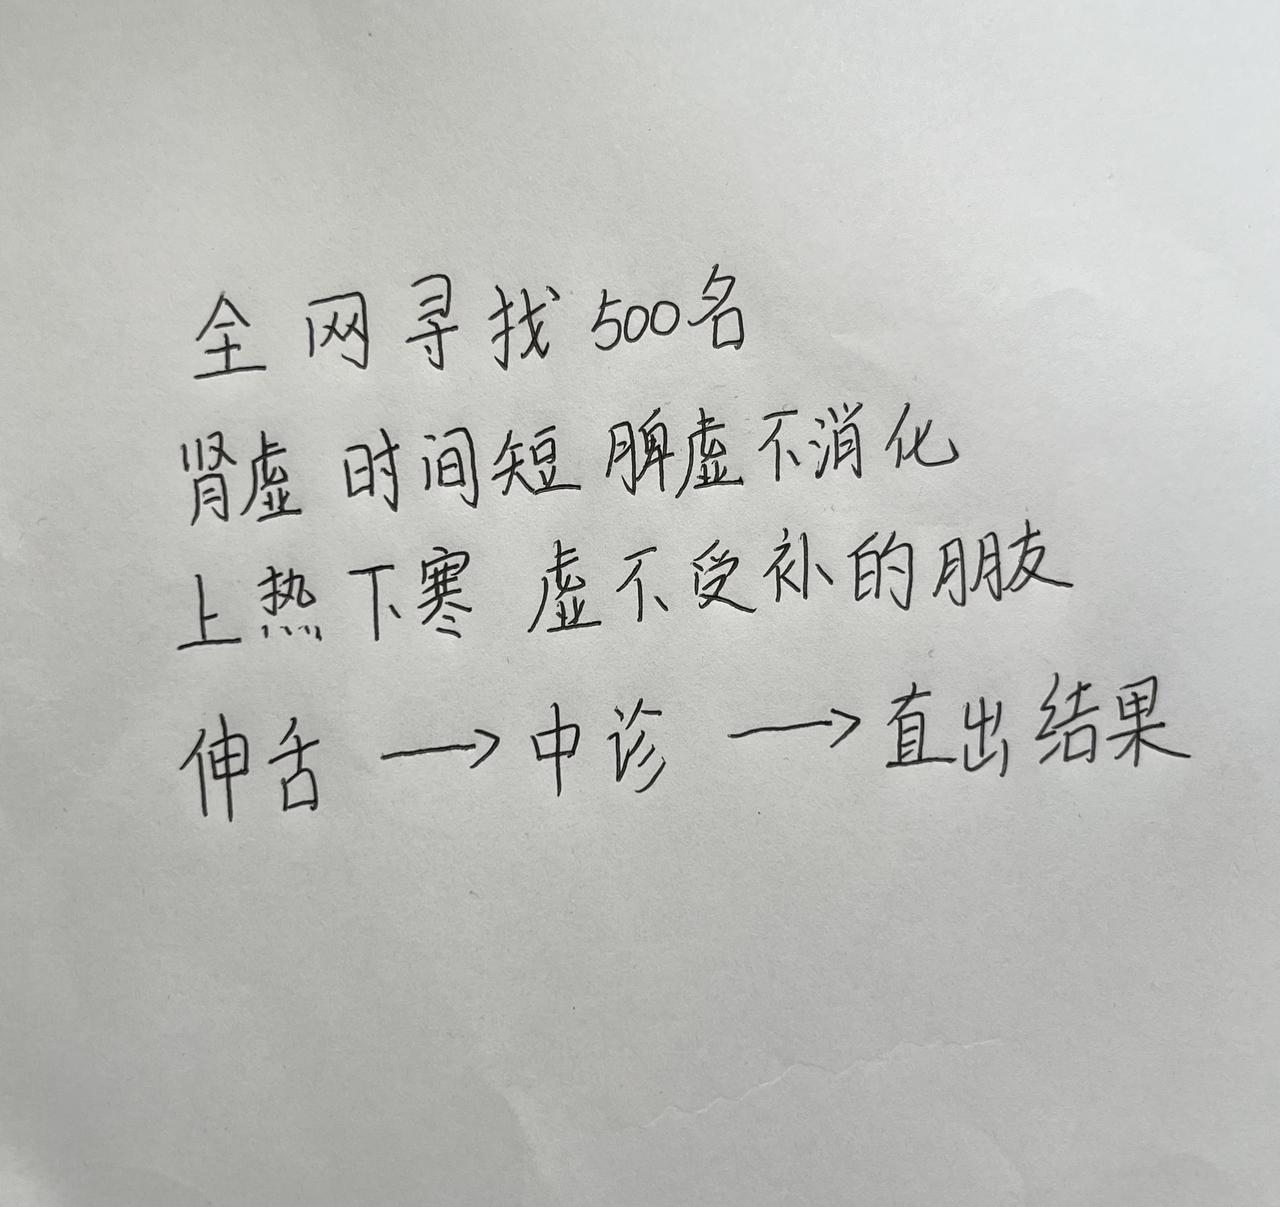 全网寻找500名
肾虚 时间短 脾虚不消化
上热下寒 虚不受补的朋友
伸舌 → 中诊 → 直出结果